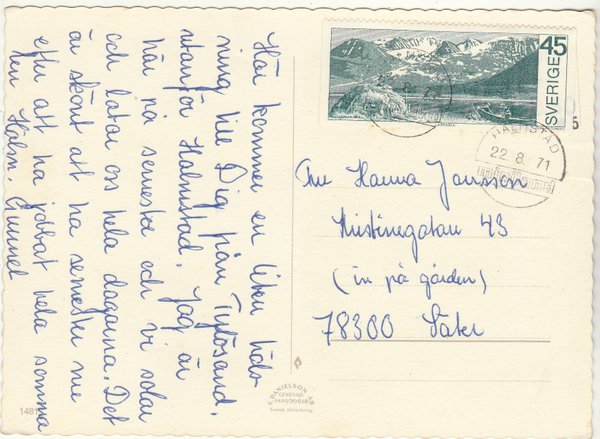 Här kommer en liten häls
ning till Dig från Tylösand.
utanför Halmstad. Jag är
här på semester och vi solar
och latar oss hela dagarna. Det
är skönt att ha semester nu
efter att ha jobbat hela somma
ren. Hälsn. Gunnel
SVERIGE 45
HALMSTAD
22.8.71
Hanna Jansson
Kristinegatan 43
(in på gården)
78300 Säter
E. DANIELSON AB
GENEVAD
0430/70216
Svensk tillverkning
1481